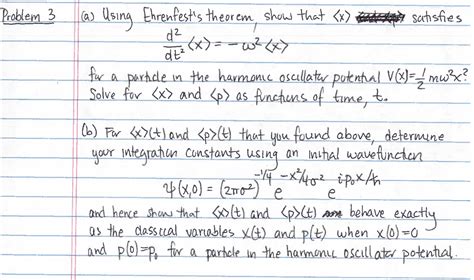 Problem 3 (a) Using Ehrenfest's theorem, show that <x> satisfies
d²/dt² <x> = -ω² <x>
for a particle in the harmonic oscillator potential V(x)=½mω²x?
Solve for <x> and <p> as functions of time, t.
(b) For <x>(t) and <p>(t) that you found above, determine
your integration constants using an initial wavefunction
ψ(x,0) = (2πσ²)^-1/4 e^-x²/4σ² e^ip₀x/ħ
and hence show that <x>(t) and <p>(t) behave exactly
as the classical variables x(t) and p(t) when x(0)=0
and p(0)=p₀ for a particle in the harmonic oscillator potential.